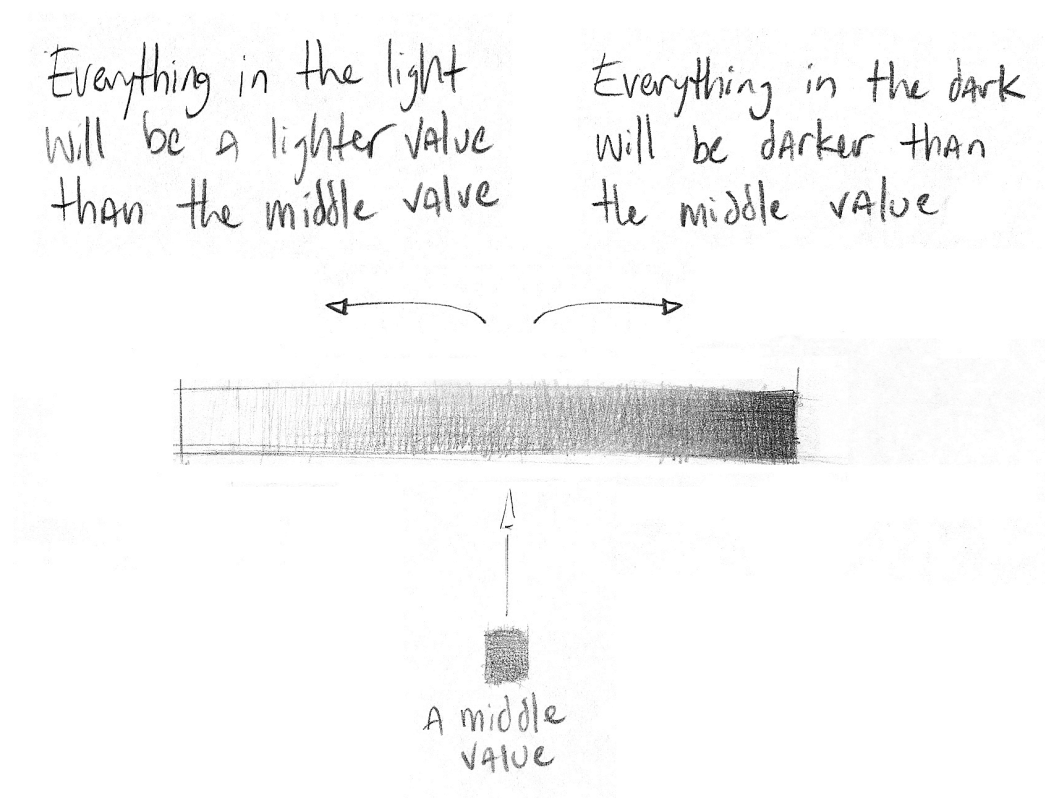 Everything in the light
will be a lighter value
than the middle value
Everything in the dark
will be darker than
the middle value
A middle
value